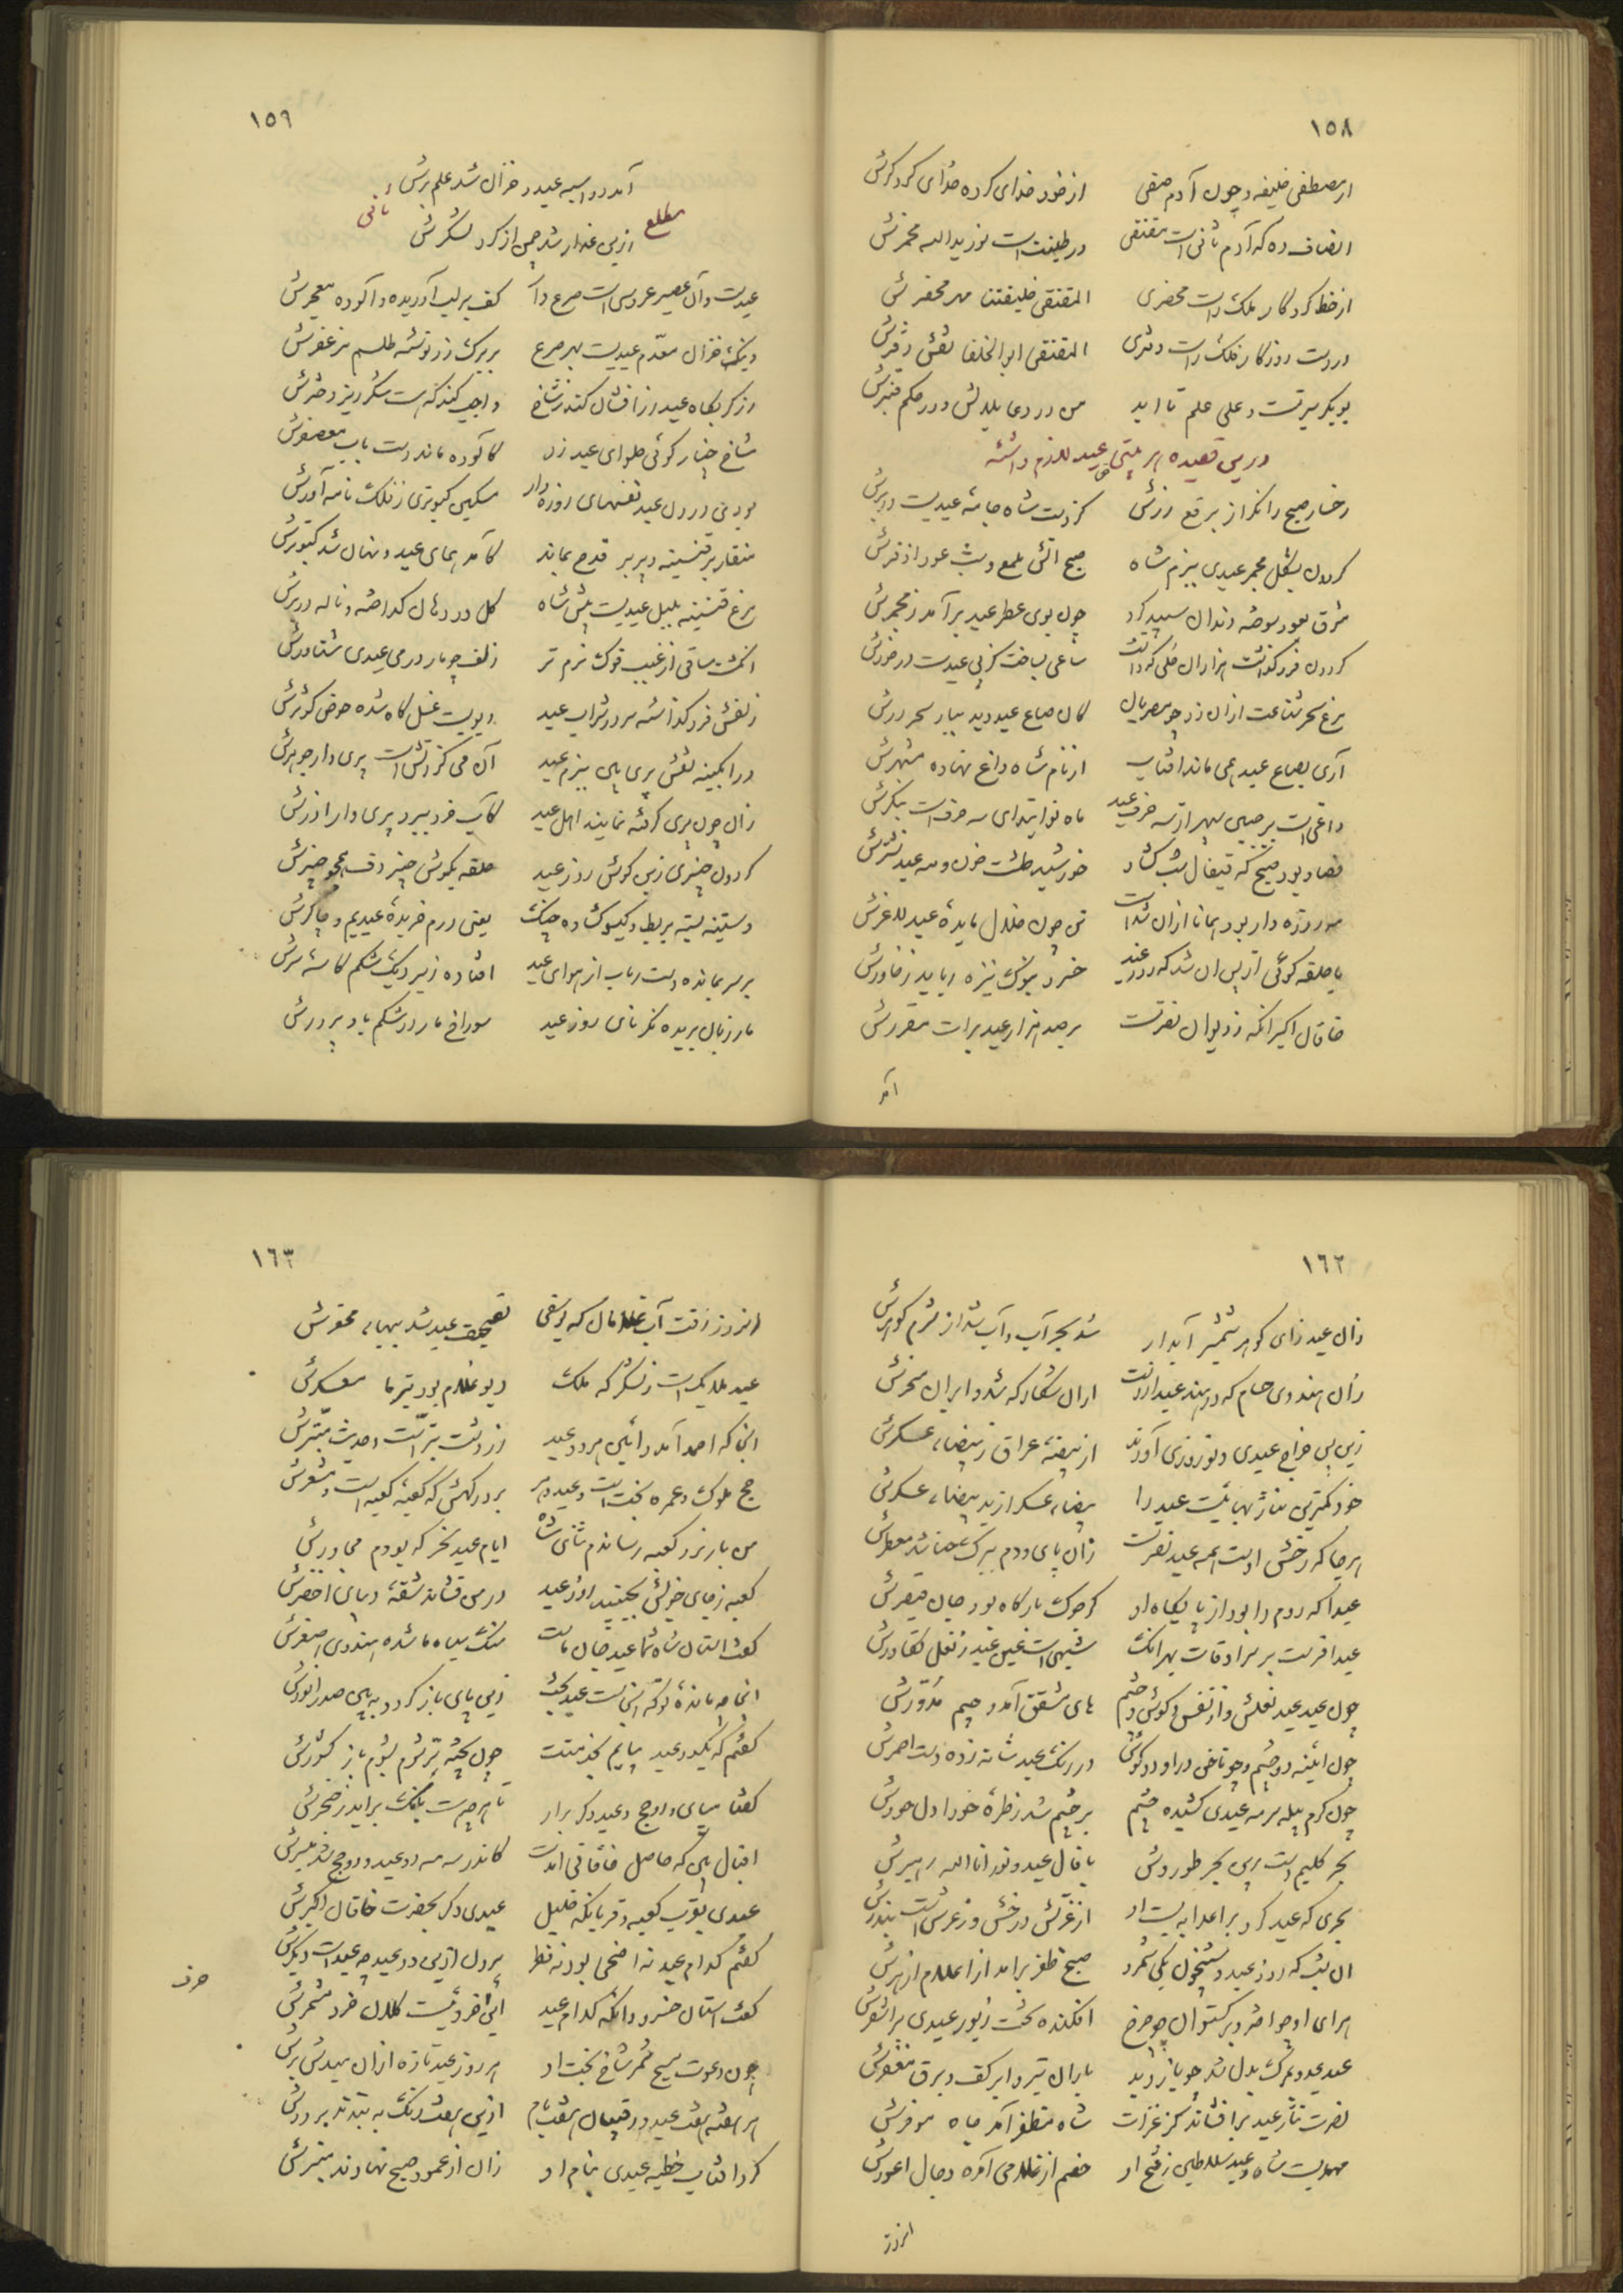 ١٥٨
از مصطفی خلیفه و چون آدم صفی از خود خدای کرده خدای کردکرش
انصاف ده که آدم ثانی است مقتفی در طینت است نور یدالله مخمرش
از خط کردگار فلک راست محضری المقتفی خلیفتنا مهر محضرش
در دست روزگار فلک راست دفتری المقتفی ابوالخلفا نقش دفترش
بوبکر سیرتست و علی علم تا ابد من در دعا بلالش و در حکم قنبرش
درین قصیده هر بیتی عید لازم داشته
رخسار صبح را نگر از برقع زرش کز دست شاه جامهٔ عیدیست در برش
گردون بشکل مجمر عیدی ببزم شاه صبح آتش ملمع و شب عود اذفرش
مشرق بعود سوخته دندان سپید کرد چون بوی عطر عید برآمد ز مجمرش
گردون فرو گذاشت هزاران حلی که داشت صاعی بساخت کز پی عیدست درخورش
مرغ سحر شناعت ازان زد چو مصریان کان صاع عید دید ببار سحر درش
آری بصاع عید همی ماند آفتاب از نام شاه داغ نهاده مشهرش
داغی است بر جبین سپهر از سه حرف عید ماه نو ابتدای سه حرف است بنگرش
فصاد بود صبح که قیفال شب گشاد خورشید طشت خون و مه عید نشترش
مه روزه دار بود همانا ازان شدست تن چون خلال مایدهٔ عید لاغرش
یا حلقه گوئی از پس آن شد که روز عید خسرو بنوک نیزه رباید ز خاورش
خاقان اکبر آنکه ز دیوان نصرتست بر صد هزار عید برات مقررش
آمد
١٥٩
آمد دواسبه عید و خزان شد علم برش
مطلع ثانی
زرین عذار شد چمن از گرد لشکرش
عیدست و آن عصیر عروسی است صرع دار کف بر لب آوریده و آلوده معجرش
وینک خزان معزم عیدیست بهر صرع بر برگ زر نوشته طلسم مزعفرش
رز گر بگاه عید زر افشاند کند ز شاخ واجب کند که هست شکر ریز دخترش
شاخ چنار گوئی حلوای عید زد کآلوده ماند دست بآب معصفرش
بودی در دل عید نفسهای روزه دار مشکین کبوتری ز فلک نامه آورش
منقار بر قنینه و پر بر قدح بماند کآمد همای عید و نهان شد کبوترش
مرغ قنینه بلبل عیدیست پیش شاه گل در دهان گداخته و ناله در برش
انگشت ساقی از غبب قوک نرم تر زلف چو مار در می عیدی شناورش
زلفش فرو گذاشته سر در شراب عید دیویست غسل گاه شده حوض کوثرش
در آبگینه نقش پری بین ببزم عید آن می کز آتش است پری وار جوهرش
زان چون پری گرفته نمایند اهل عید کآب خرد ببرد پری وار آذرش
گردون چنبری زپی کوس روز عید حلقه بگوش چنبر دف همچو چنبرش
دستینه بسته بربط و گیسو گشاده چنگ یعنی درم خریدهٔ عیدیم و چاکرش
بر سر بمانده دست رباب از هوای عید افتاده زیر دیگ شکم کاسهٔ سرش
مار زبان بریده نگر نای روز عید سوراخ مار در شکم باد پرورش
١٦٢
زان عید زای گوهر شمشیر آبدار شد بحر آب و آب شد از شرم گوهرش
زان هندوی حسام که در هند عید ازوست اران شکار که شد و ایران مسخرش
زین پس خراج عیدی و نوروزی آورند از بیضهٔ عراق و ز بیضاء عسکرش
خود کمترین نثار بهائیست عید را بیضاء عسکر از ید بیضاء عسکرش
هر جا که رخش اوست همه عید نصرت زان پای و دم برنگ حنا شد معطرش
عیدا که روم را بود از پایگاه او کز خوک بارگاه بود جان قیصرش
عید افسریست بر سر اوقات بهر آنک شبهی است عین عید ز نعل تکاورش
چون عید عید نعلش و از نفس گوش و چشم های مشقق آمد و جیم مدورش
چون آینه دو چشم و چو ناخن دو راود گوش در رنگ عید شانه زده دست احمرش
چون کرم پیله سرمه عیدی کشیده چشم بر چشم شد ز طرهٔ حورا دل حورش
بحر کلیم است پی بحر طور وش با قال عید و نور انا الله رهبرش
بحری که عید کرد بر اعدا به پشت او از غرش درخش وز غرش است تندرش
آن شب که روز عید و شبیخون یکی شمرد صبح ظفر برآمد از اعلام ازهرش
هرای او چو اختر و برگستوان چو چرخ افکنده بخت زیور عیدی بر اشقرش
عید عدو بمرگ بدل شد چو باز دید باران تیر و ابر کف و برق مغفرش
نصرت نثار عید برافشاند کز غزات شاه مظفر آمد و جاه موفرش
مهدیست شاه و عید سلاطین ز فتح او خصم از غلامی آمده دجال اعورش
امروز
١٦٣
امروز رفت آب غلامان که یوسفی تصحیف عید شد ببهاء محقرش
عید ملایک است ز لشکر گه ملک دیو غلام بود بتیره معسکرش
اینجا که احمد آمد و آئین هر دو عید زردشت ابتر است و حدیث مبترش
حج ملوک و عمره بخت است و عید دهر بر درگهش که کعبهٔ کعبه است و مشعرش
من بار نزد کعبه رساندم ثنای شاه ایام عید نحر که بودم مجاورش
کعبه ز جای خویش بجنبید روز عید در من فشاند شقهٔ دیبای اخضرش
گفت آستان شاه شما عید جان ماست سنگ سیاه ما شده هندوی اصفرش
اینجا چه ماندهٔ تو که آنجاست عید بخت زین پای باز گرد و ببین صدر انورش
گفتم که یکدو عید بپایم بخدمتت چون پخته تر شوم بشوم باز کشورش
گفتا مپای و رو حج و عیدی دگر برآر تا هر چه هست بانگ برآید ز خنجرش
اقبال بین که حاصل خاقانی آمدست کاندر سه مه دو عید و دو حج شد میسرش
عیدی بقرب کعبه و قربانگه خلیل عیدی دگر بحضرت خاقان اکبرش
گفتم کدام عید نه اضحی بود نه فطر بیرون ازین دو عید چه عیدست دیگرش
گفت آستان خسرو وانگه کدام عید این حرف نیست کلدان خرد مشمرش
حرف
چون دعوت مسیح شمر شاخ بخت او هر روز عید تازه ازان میدهد برش
هر هفته هفت عید و رقیبان هفت بام آذین هفت رنگ ببندند بر درش
کرد آفتاب خطبه عیدی بنام او زان از عمود صبح نهادند منبرش